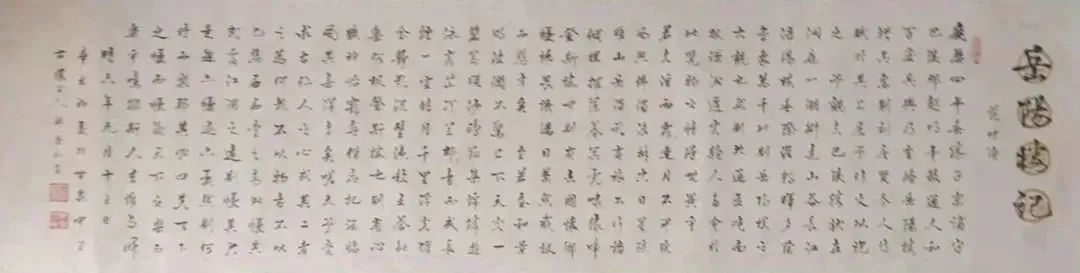 岳陽樓記
范仲淹
慶曆四年春滕子京謫守
巴陵郡越明年政通人和
百廢具興乃重修岳陽樓
增其舊制刻唐賢今人詩
賦於其上屬予作文以記
之 予觀夫巴陵勝狀在
洞庭一湖銜遠山吞長江
浩浩湯湯橫無際涯朝暉夕陰
氣象萬千此則岳陽樓之
大觀也然則北通巫峽南
極瀟湘遷客騷人多會於
此覽物之情得無異乎
若夫霪雨霏霏連月不開陰
風怒號濁浪排空日星隱
曜山岳潛形商旅不行檣
傾楫摧薄暮冥冥虎嘯猿啼
登斯樓也則有去國懷鄉
憂讒畏譏滿目蕭然感極
而悲者矣 至若春和景
明波瀾不驚上下天光一
碧萬頃沙鷗翔集錦鱗游
泳岸芷汀蘭郁郁青青而或長
煙一空皓月千里浮光躍
金靜影沉璧漁歌互答此
樂何極登斯樓也則有心
曠神怡寵辱偕忘把酒臨
風其喜洋洋者矣嗟夫予嘗
求古仁人之心或異二者
之為何哉不以物喜不以
己悲居廟堂之高則憂其
民處江湖之遠則憂其君
是進亦憂退亦憂然則何
時而樂耶其必曰先天下
之憂而憂後天下之樂而
樂乎噫微斯人吾誰與歸
時六年九月十五日